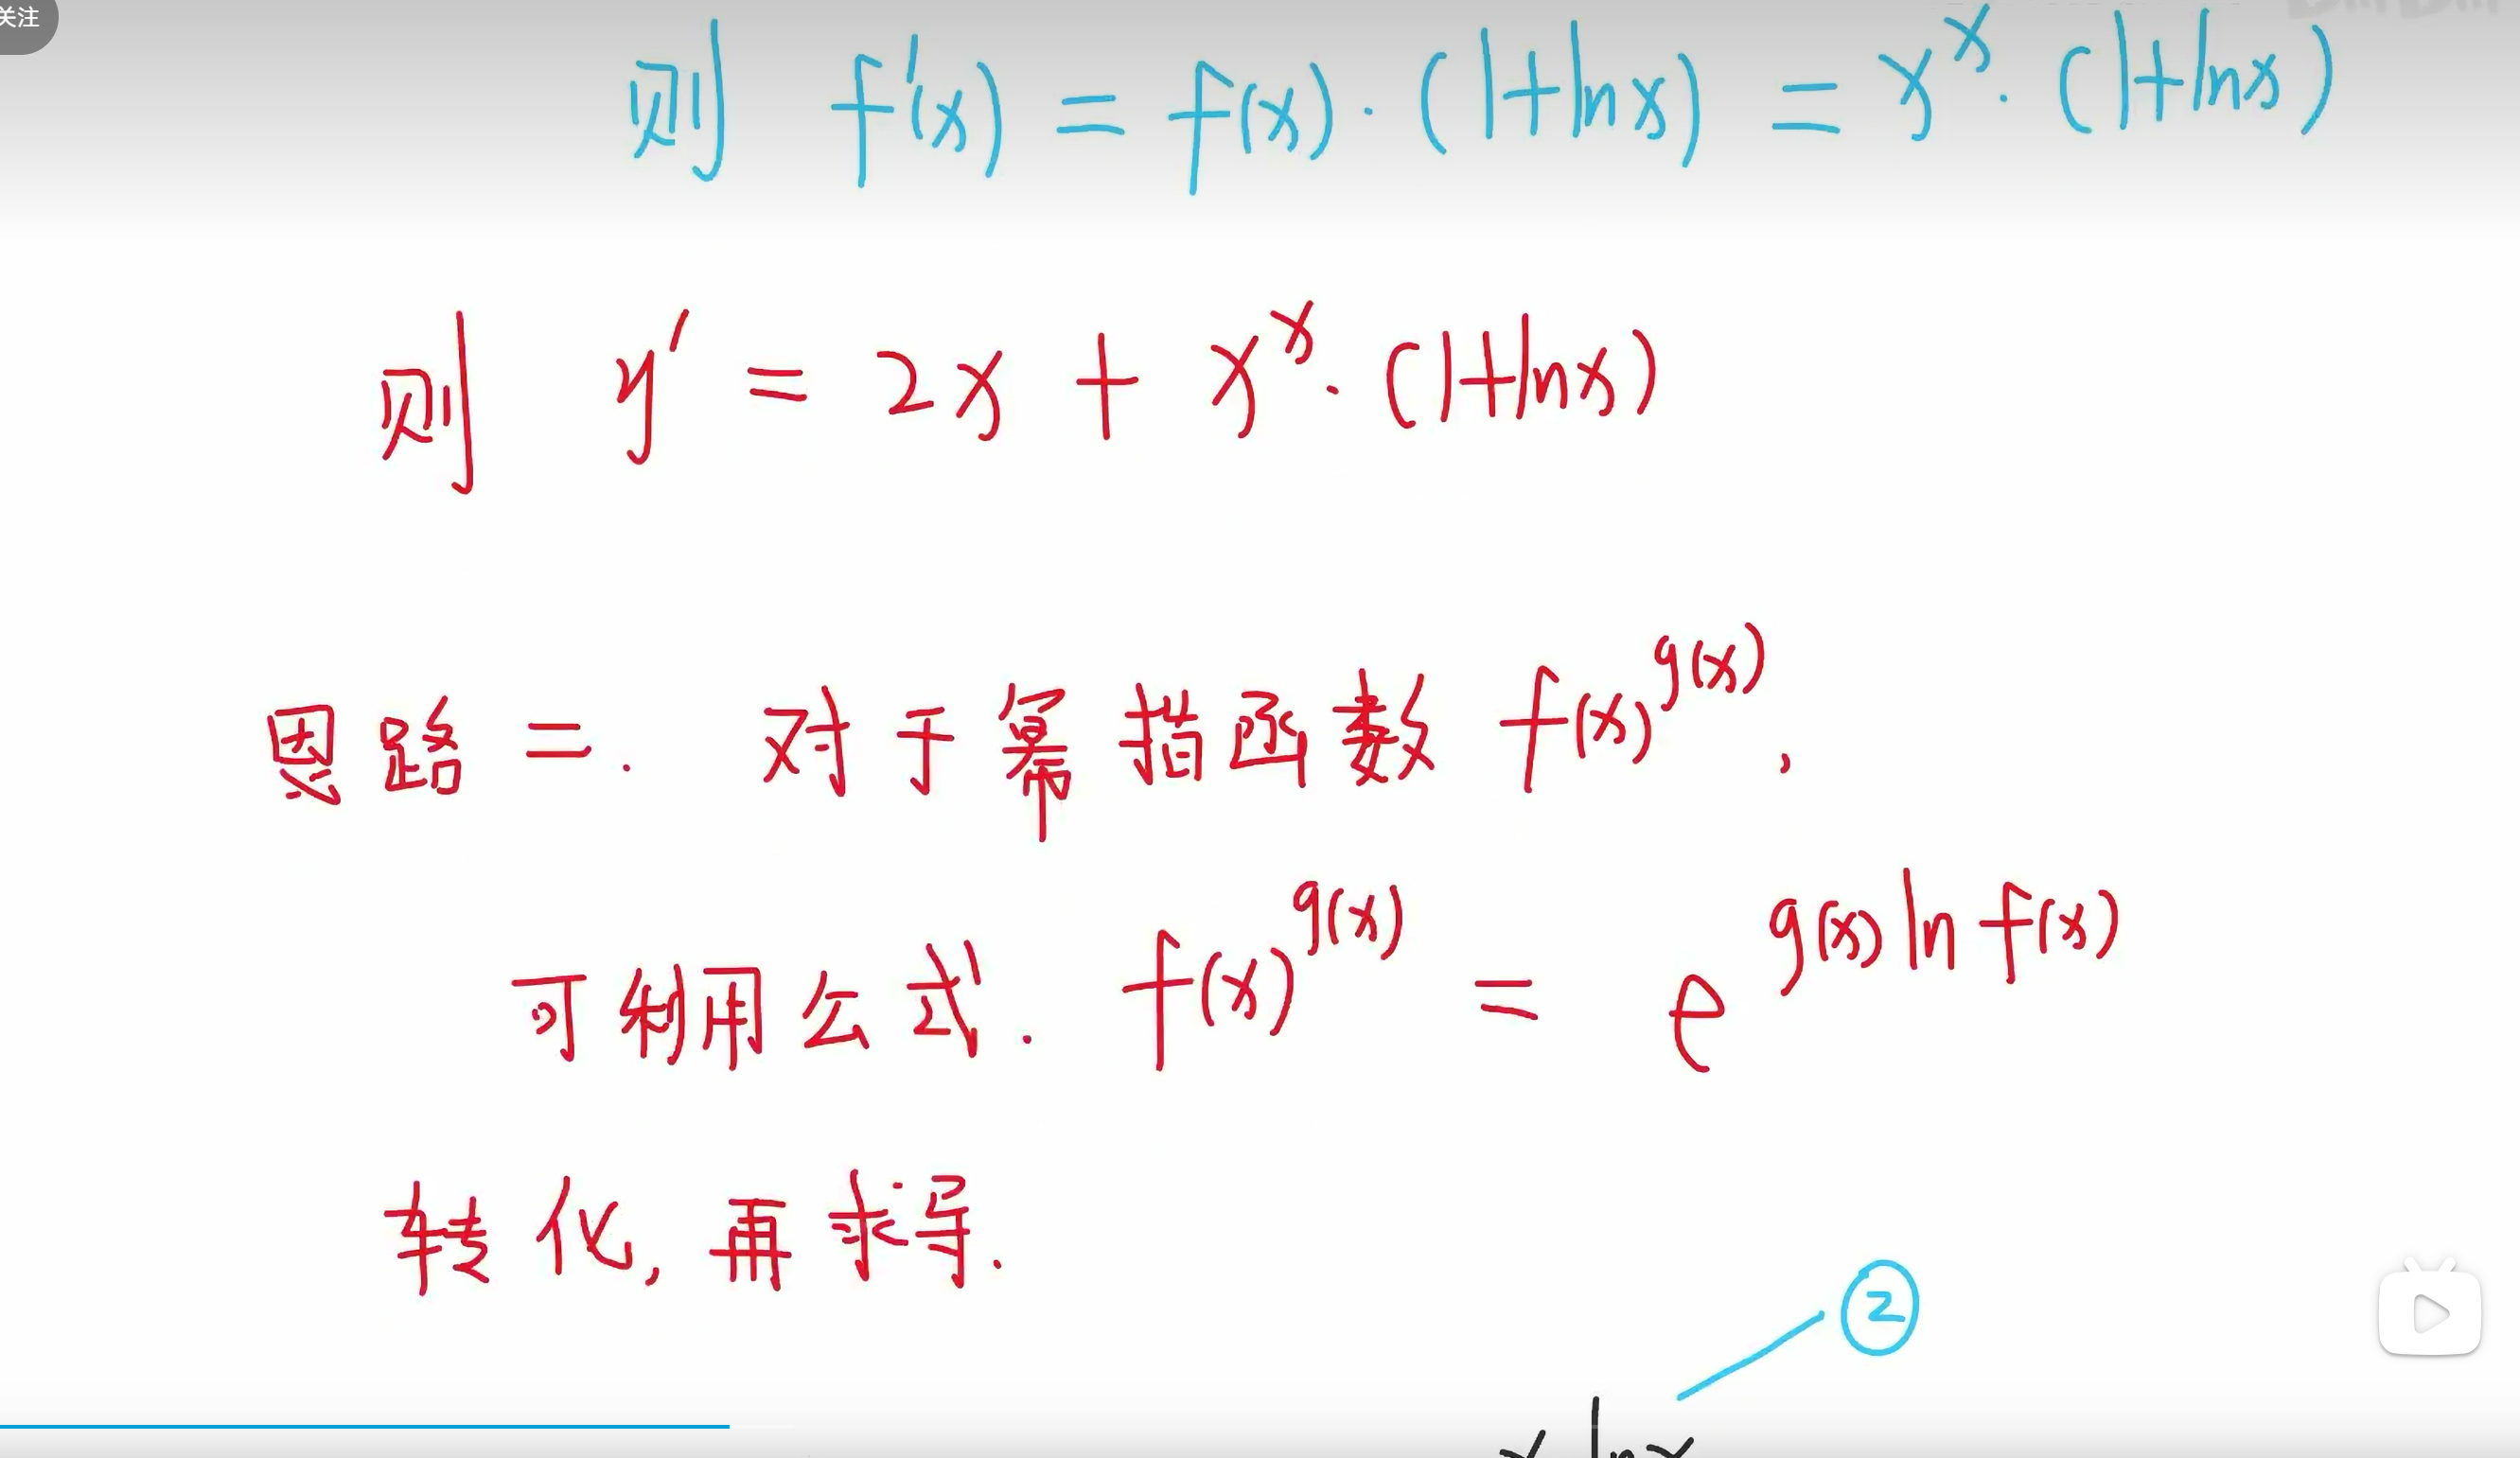 关注
则 f'(x) = f(x)·(1+lnx) = x^x·(1+lnx)
则 y' = 2x + x^x·(1+lnx)
思路二. 对于幂指函数 f(x)^g(x),
可利用公式. f(x)^g(x) = e^g(x)ln f(x)
转化, 再求导.
②
x lnx